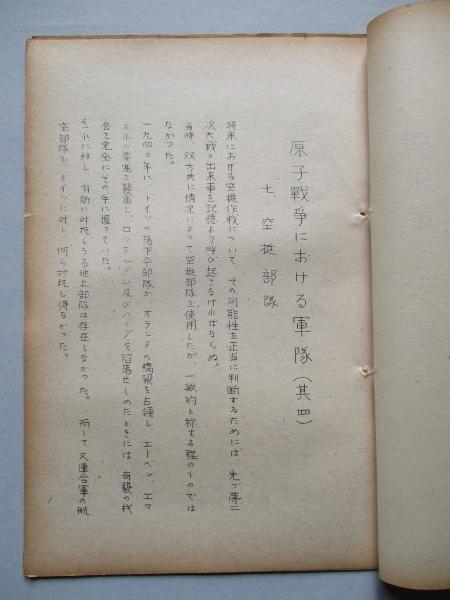 原子戰爭における軍隊（其四）
七、空挺部隊
將来における空挺作戦について、その可能性を正当に判断するためには、先づ第二
次大戦の出来事を記憶より呼び起さなければならぬ。
当時、双方共に情況によって空挺部隊を使用したが、一般的と称する程のものでは
なかった。
一九四〇年に、ドイツの落下傘部隊が、オランダの橋梁を占領し、エーベン、エマ
エルの要塞を襲击し、ロッテルダム及びハーグを陥落せしめたときには、奇襲の機
会を完全にその手に握っていた。
之れに対し、有効に対抗しうる地上部隊は存在しなかった。而して又連合軍の航
空部隊も、ドイツに対し、何ら対抗し得なかった。